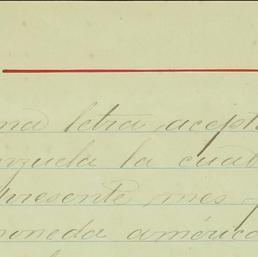 na letra acept
nzuela la cual
presente mes
moneda america